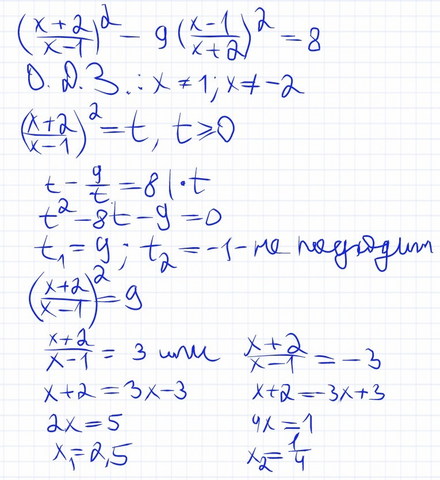 ((x+2)/(x-1))² - 9((x-1)/(x+2))² = 8
О.Д.З.: x ≠ 1; x ≠ -2
((x+2)/(x-1))² = t, t ≥ 0
t - 9/t = 8 | · t
t² - 8t - 9 = 0
t₁ = 9; t₂ = -1 - не подходит
((x+2)/(x-1))² = 9
(x+2)/(x-1) = 3 или (x+2)/(x-1) = -3
x+2 = 3x-3 x+2 = -3x+3
2x = 5 4x = 1
x₁ = 2,5 x₂ = 1/4